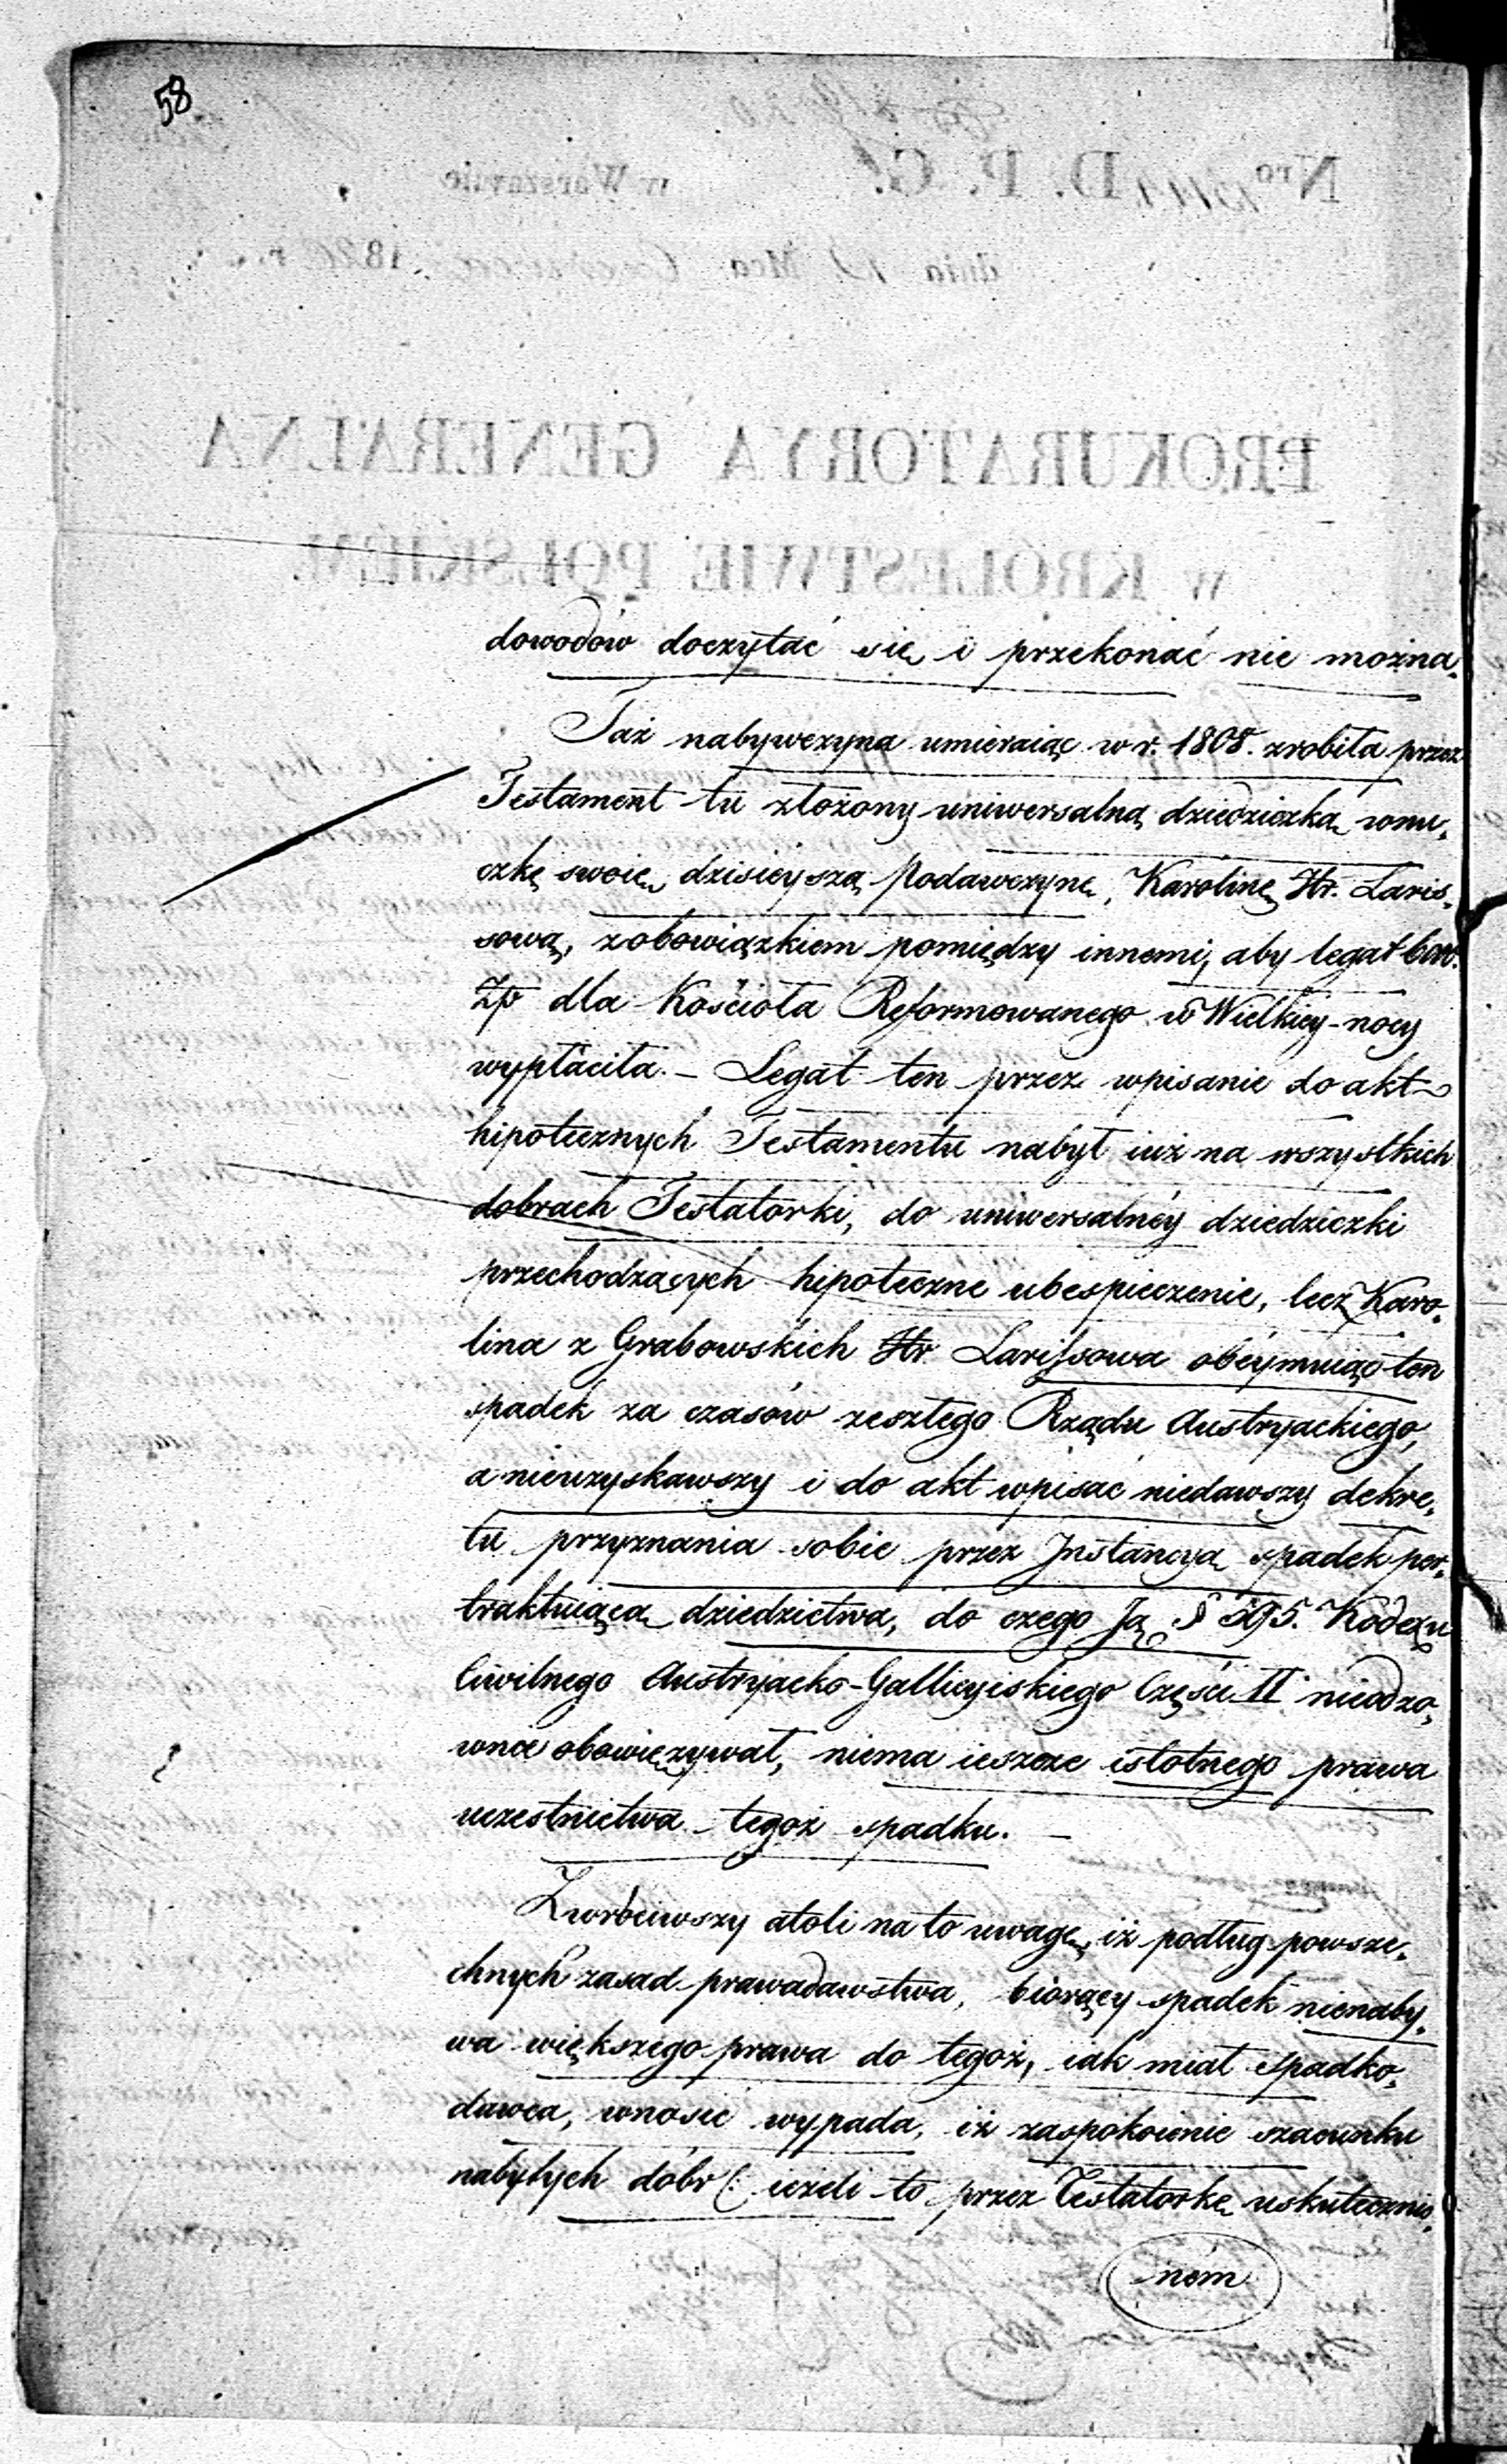 58
dowodów doczytać się i przekonać nie można.
Taż nabywczyna umieraiąc w r. 1808. zrobiła przez
Testament tu złożony uniwersalną dziedziczką wnu-
czkę swoię, dzisieyszą Podawczynę, Karolinę Hr. Laris-
sową, z obowiązkiem pomiędzy innemi, aby legat
Zp dla Kościoła Reformowanego w Wielkiey-nocy
wypłaciła. – Legat ten przez wpisanie do akt
hipotecznych Testamentu nabył iuż na wszystkich
dobrach Testatorki, do uniwersalnéy dziedziczki
przechodzących hipoteczne ubespieczenie, lecz Karo-
lina z Grabowskich Hr. Larissowa obéymuiąc ten
spadek za czasów zeszłego Rządu Austryackiego,
a nieuzyskawszy i do akt wpisać niedawszy dekre-
tu przyznania sobie przez Instancyą spadek per-
traktuiącą dziedzictwa, do czego Ją § 595. Kodexu
Cywilnego Austryacko-Gallicyiskiego Części II nieodzo-
wnie obowięzywał, niema ieszcze istotnego prawa
uczestnictwa tegoż spadku. –
Zwróciwszy atoli na to uwagę, iż podług powsze-
chnych zasad prawadawstwa, biorący spadek nienaby-
wa większego prawa do tegoż, iak miał spadko-
dawca, wnosić wypada, iż zaspokoienie szacunku
nabytych dóbr (: ieżeli to przez Testatorkę uskutecznio-
ném